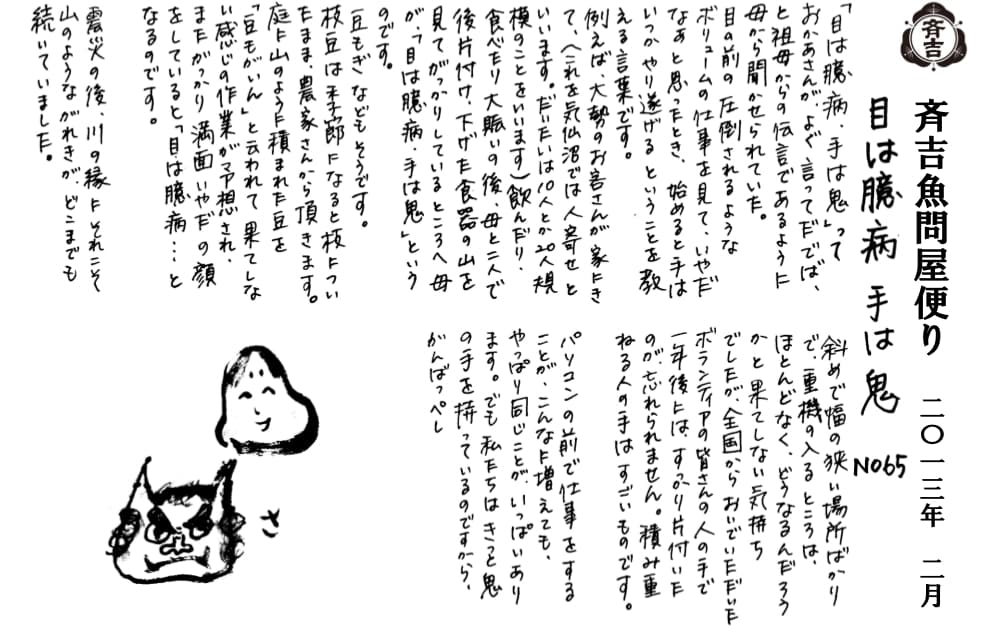 斉吉
斉吉魚問屋便り 二〇一三年 二月
目は臆病 手は鬼 No65
「目は臆病、手は鬼」って
おかあさんが、よぐ言ってだでば、
と祖母からの伝言であるように
母から聞かせられていた。
目の前の圧倒されるような
ボリュームの仕事を見て、いやだ
なぁと思ったとき、始めると手は
いつかやり遂げるということを教
える言葉です。
例えば、大勢のお客さんが家にき
て、(これを気仙沼では人寄せと
いいます。だいたいは10人とか20人規
模のことをいいます)飲んだり、
食べたり大賑いの後、母と二人で
後片付け、下げた食器の山を
見てがっかりしているところへ母
が「目は臆病、手は鬼」という
のです。
豆もぎなどもそうです。
枝豆は季節になると枝につい
たまま、農家さんから頂きます。
庭に山のように積まれた豆を
「豆もがいん」と云われて果てしな
い感じの作業が予想され、
またがっかり満面いやだの顔
をしていると「目は臆病…と
なるのです。
震災の後、川の縁にそれこそ
山のようながれきが、どこまでも
続いていました。
斜めで幅の狭い場所ばかり
で、重機の入るところは、
ほとんどなく、どうなるんだろう
かと果てしない気持ち
でしたが、全国からおいでいただいた
ボランティアの皆さんの人の手で
一年後には、すっかり片付いた
のが、忘れられません。積み重
ねる人の手はすごいものです。
パソコンの前で仕事をする
ことが、こんなに増えても、
やっぱり同じことが、いっぱいあり
ます。でも私たちはきっと鬼
の手を持っているのですから、
がんばっぺし
さ